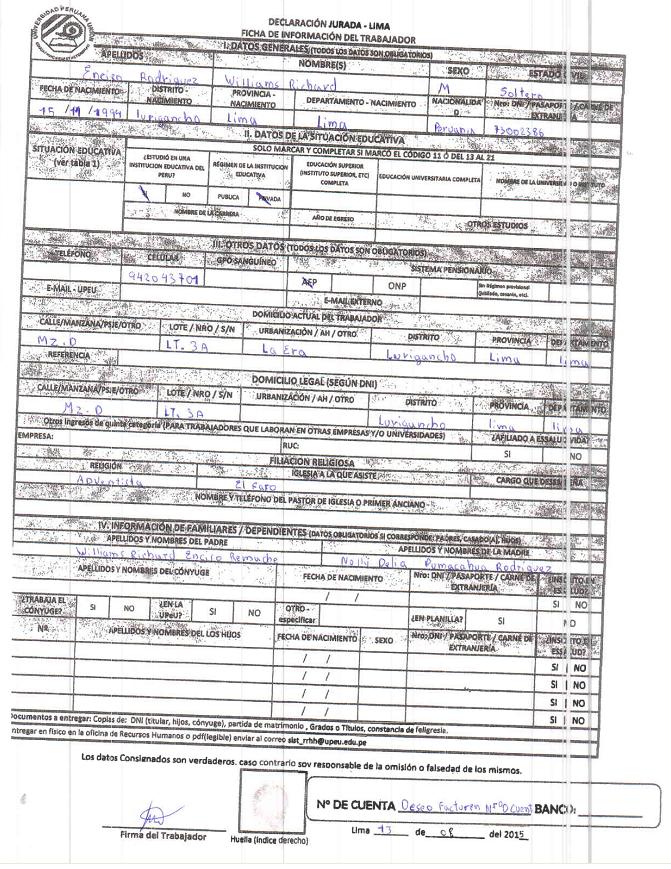 UNIVERSIDAD PERUANA UNION
DECLARACIÓN JURADA - LIMA
FICHA DE INFORMACIÓN DEL TRABAJADOR
I. DATOS GENERALES (TODOS LOS DATOS SON OBLIGATORIOS)
APELLIDOS NOMBRE(S) SEXO ESTADO CIVIL
Enciso Rodriguez Williams Richard M Soltero
FECHA DE NACIMIENTO DISTRITO - NACIMIENTO PROVINCIA - NACIMIENTO DEPARTAMENTO - NACIMIENTO NACIONALIDAD Nro: DNI / PASAPORTE / CARNÉ DE EXTRANJERÍA
15 / 11 / 1994 Lurigancho Lima Lima Peruania 73002386
II. DATOS DE LA SITUACIÓN EDUCATIVA
SITUACIÓN EDUCATIVA (ver tabla 1) SOLO MARCAR Y COMPLETAR SI MARCÓ EL CÓDIGO 11 Ó DEL 13 AL 21
¿ESTUDIÓ EN UNA INSTITUCIÓN EDUCATIVA DEL PERU? RÉGIMEN DE LA INSTITUCIÓN EDUCATIVA EDUCACIÓN SUPERIOR (INSTITUTO SUPERIOR, ETC) COMPLETA EDUCACIÓN UNIVERSITARIA COMPLETA NOMBRE DE LA UNIVERSIDAD O INSTITUTO
SI NO PUBLICA PRIVADA
NOMBRE DE LA CARRERA AÑO DE EGRESO OTROS ESTUDIOS
III. OTROS DATOS (TODOS LOS DATOS SON OBLIGATORIOS)
TELÉFONO CELULAR GPO SANGUÍNEO SISTEMA PENSIONARIO
942043701 AFP ONP Sin Régimen provisional (jubilado, cesante, etc).
E-MAIL - UPEU E-MAIL EXTERNO
DOMICILIO ACTUAL DEL TRABAJADOR
CALLE/MANZANA/PSJE/OTRO LOTE / NRO / S/N URBANIZACIÓN / AH / OTRO DISTRITO PROVINCIA DEPARTAMENTO
Mz. D LT. 3A La Era Lurigancho Lima Lima
REFERENCIA
DOMICILIO LEGAL (SEGÚN DNI)
CALLE/MANZANA/PSJE/OTRO LOTE / NRO / S/N URBANIZACIÓN / AH / OTRO DISTRITO PROVINCIA DEPARTAMENTO
Mz. D LT. 3A Lurigancho Lima Lima
Otros ingresos de quinta categoría (PARA TRABAJADORES QUE LABORAN EN OTRAS EMPRESAS Y/O UNIVERSIDADES) ¿AFILIADO A ESSALUD VIDA?
EMPRESA: RUC: SI NO
FILIACION RELIGIOSA
RELIGIÓN IGLESIA A LA QUE ASISTE CARGO QUE DESEMPEÑA
Adventista El Faro
NOMBRE Y TELÉFONO DEL PASTOR DE IGLESIA O PRIMER ANCIANO -
IV. INFORMACIÓN DE FAMILIARES / DEPENDIENTES (DATOS OBLIGATORIOS SI CORRESPONDE: PADRES, CASADO(A), HIJOS)
APELLIDOS Y NOMBRES DEL PADRE APELLIDOS Y NOMBRES DE LA MADRE
Williams Richard Enciso Remuche Nolly Delia Pumacahua Rodriguez
APELLIDOS Y NOMBRES DEL CÓNYUGE FECHA DE NACIMIENTO Nro: DNI / PASAPORTE / CARNÉ DE EXTRANJERÍA ¿INSCRITO EN ESSALUD?
/ / SI NO
¿TRABAJA EL CÓNYUGE? SI NO ¿EN LA UPeU? SI NO OTRO - especificar ¿EN PLANILLA? SI NO
Nº APELLIDOS Y NOMBRES DEL LOS HIJOS FECHA DE NACIMIENTO SEXO Nro: DNI / PASAPORTE / CARNÉ DE EXTRANJERÍA ¿INSCRITO EN ESSALUD?
/ / SI NO
/ / SI NO
/ / SI NO
/ / SI NO
Documentos a entregar: Copias de: DNI (titular, hijos, cónyuge), partida de matrimonio, Grados o Títulos, constancia de feligresia.
entregar en físico en la oficina de Recursos Humanos o pdf(legible) enviar al correo sist_rrhh@upeu.edu.pe
Los datos Consignados son verdaderos. caso contrario soy responsable de la omisión o falsedad de los mismos.
Nº DE CUENTA Deseo Facturen Nº D Cuent BANCO:
Firma del Trabajador Huella (índice derecho) Lima 13 de 08 del 2015